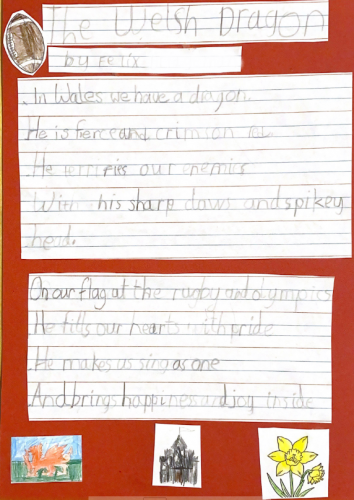 The Welsh Dragon
by Felix
In Wales we have a dragon.
He is fierce and crimson red.
He terrifies our enemies
With his sharp claws and spikey
head.
On our flag at the rugby and olympics
He fills our hearts with pride
He makes us sing as one
And brings happiness and joy inside